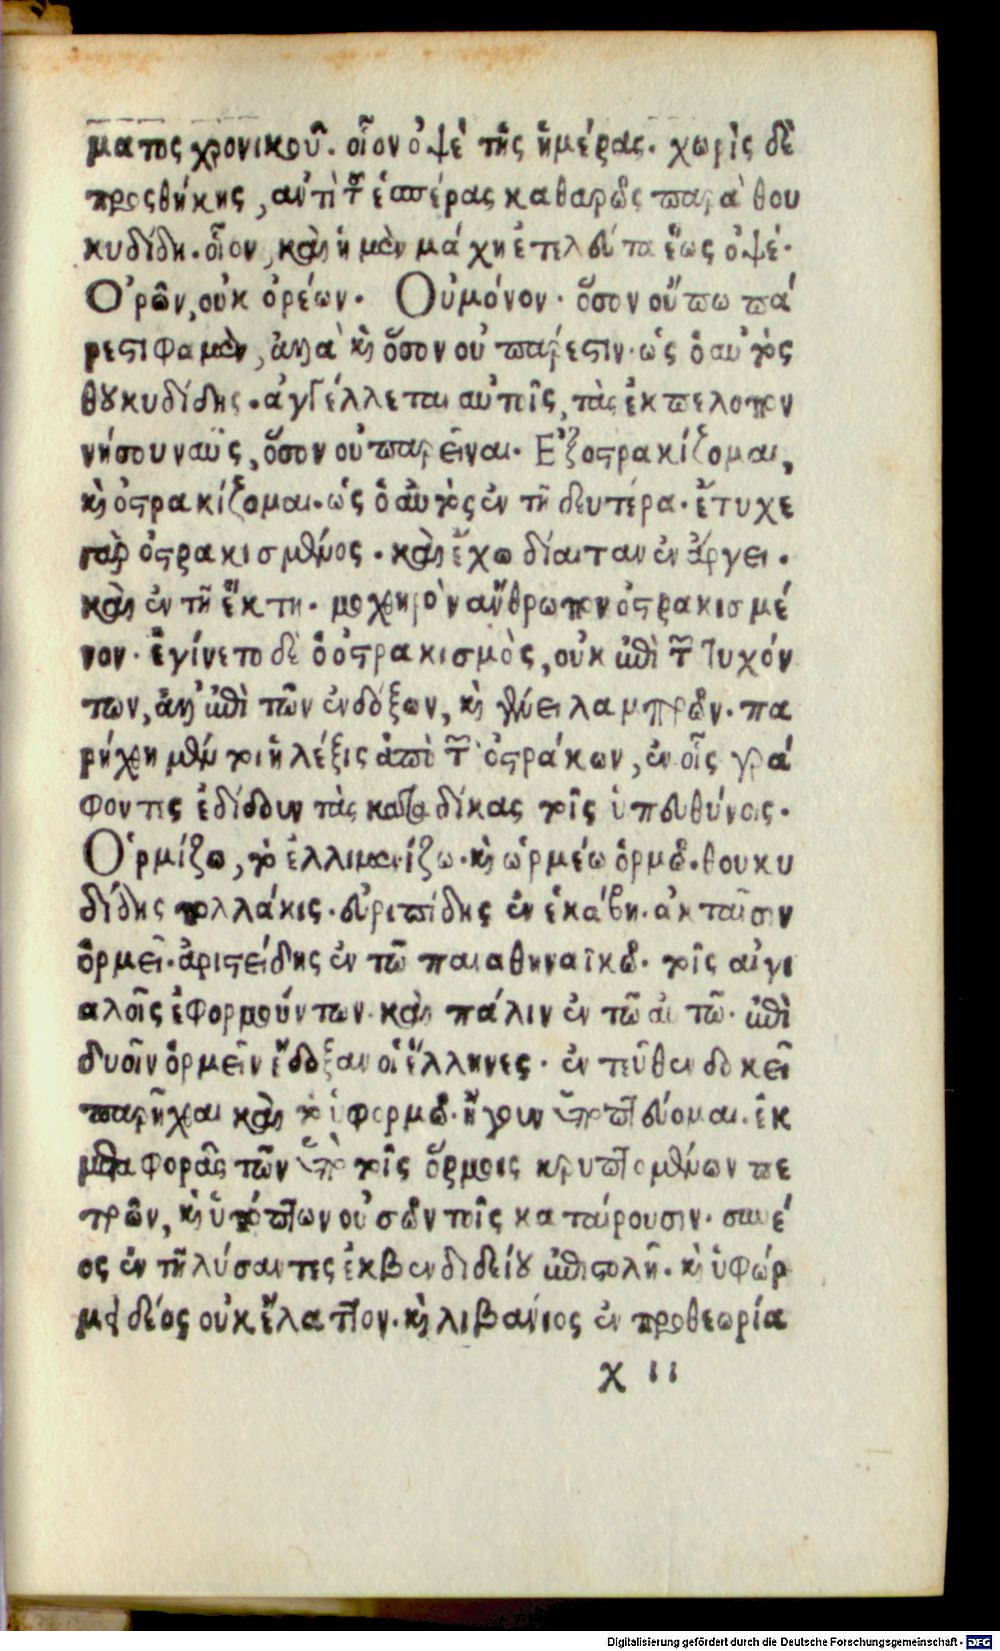 ματος χρονικοῦ. οἷον ὀψὲ τῆς ἡμέρας. χωρὶς δὲ
προςθήκης, αὐτὶ τ̃ ἑσπέρας καθαρῶς παρὰ θου
κυδίδη. οἷον, καὶ ἡ μὲν μάχη ἐτελεύτα ἕως ὀψέ.
Ὁρῶν, οὐκ ὁρέων. Οὐμόνον. ὅσον οὔπω πά
ρεστι φαμὲν, ἀλλὰ κὶ ὅσον οὐ πάρεστιν. ὡς ὁ αὐτὸς
θουκυδίδης. ἀγγέλλεται αὐτοῖς, τὰς ἐκ πελοπον
νήσου ναῦς, ὅσον οὐ παρεῖναι. Ἐξοστρακίζομαι,
κὶ ὀστρακίζομαι. ὡς ὁ αὐτὸς ἐν τῆ δευτέρα. ἔτυχε
γὰρ ὀστρακισμένος. καὶ ἔχω δίαιταν ἐν ἄργει.
καὶ ἐν τῆ ἕκτη. μοχθηρὸν ἄνθρωπον ὀστρακισμέ
νον. ἐγίνετο δὲ ὁ ὀστρακισμὸς, οὐκ ἐπὶ τ̃ τυχόν
των, ἀλλ' ἐπὶ τῶν ἐνδόξων, κὶ γένει λαμπρῶν. πα
ρήχθη μέν τοι ἡ λέξις ἀπὸ τ̃ ὀστράκων, ἐν οἷς γρά
φοντες ἐδίδουν τὰς καταδίκας τοῖς ὑπευθύνοις.
Ὁρμίζω, τὸ ἐλλιμενίζω. κὶ ὡρμέω ὁρμῶ. θουκυ
δίδης πολλάκις. εὐριπίδης ἐν ἑκάβη. ἀκταῖσιν
ὁρμεῖ. ἀριστείδης ἐν τῶ παιαθηναϊκῶ. τοῖς αἰγι
αλοῖς ἐφορμούντων. καὶ πάλιν ἐν τῶ αὐτῶ. ἐπὶ
δυοῖν ὁρμεῖν ἔδοξαν οἱ ἕλληνες. ἐντεῦθεν δοκεῖ
παρῆχθαι καὶ τὸ ὑφορμῶ. ἤγουν ὑποπτεύομαι. ἐκ
μεταφορᾶς τῶν ὑπὸ τοῖς ὅρμοις κρυπτομένων πε
τρῶν, κὶ ὑπόπτων οὐσῶν τοῖς καταίρουσιν. συνέ
ος ἐν τῆ λύσαντες ἐκ βενδιδείου ἐπιστολῆ. κὶ ὑφώρ
μει δέος οὐκ ἔλαττον. κὶ λιβάνιος ἐν προθεωρία
χ ιι
Digitalisierung gefördert durch die Deutsche Forschungsgemeinschaft - DFG